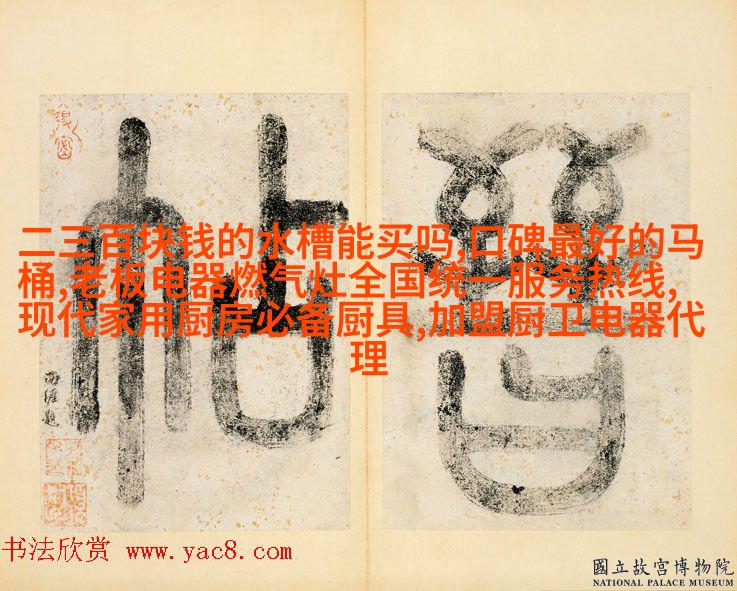 晉帖
西涯題
二三百块钱的水槽能买吗,口碑最好的马
桶,老板电器燃气灶全国统一服务热线,
现代家用厨房必备厨具,加盟厨卫电器代
理
书法欣赏 www.yac8.com
國立故宮博物院
NATIONAL PALACE MUSEUM